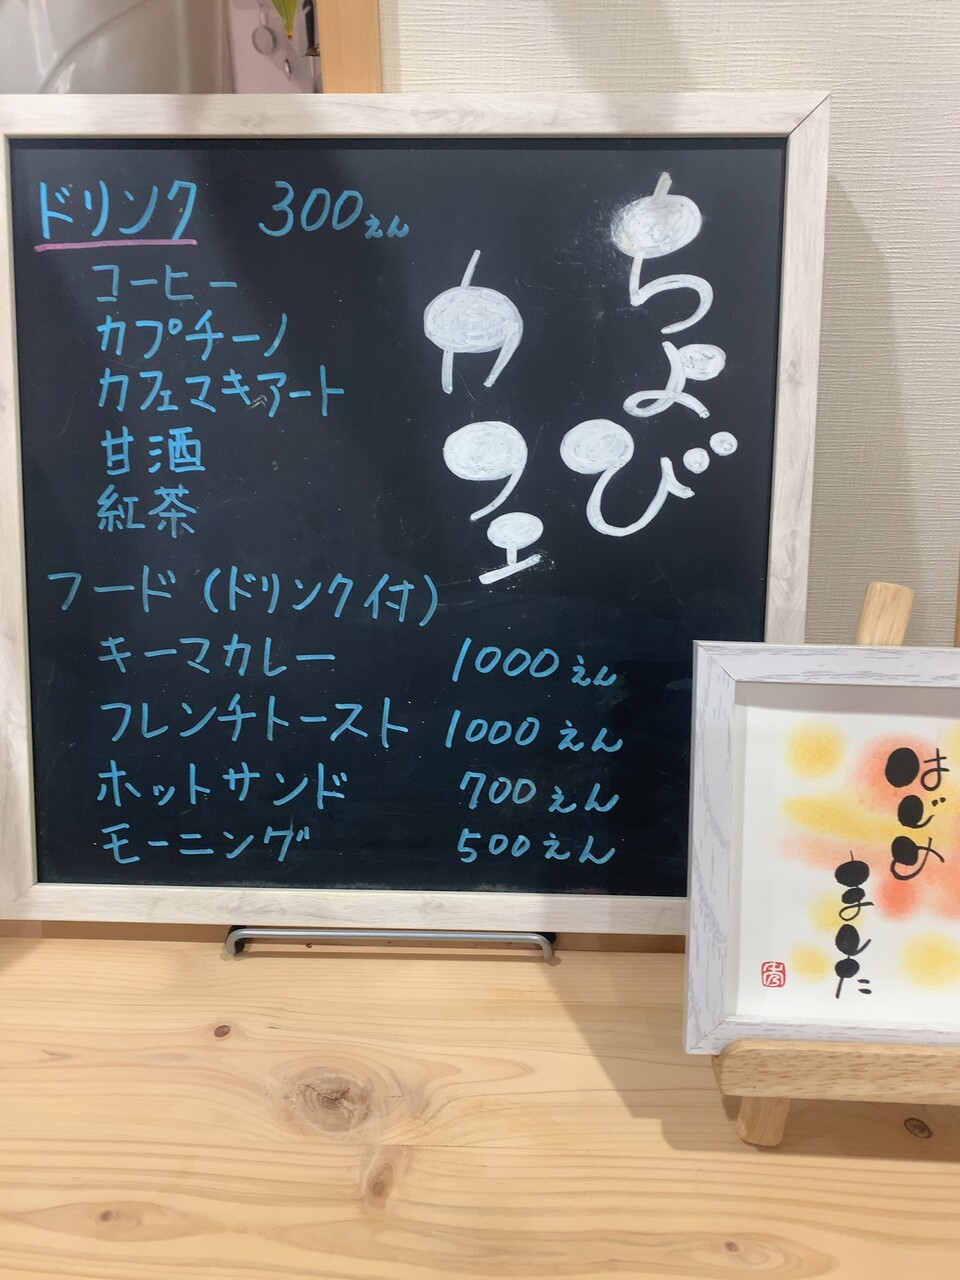 ちょび
カフェ
ドリンク 300えん
コーヒー
カプチーノ
カフェマキアート
甘酒
紅茶
フード(ドリンク付)
キーマカレー 1000えん
フレンチトースト 1000えん
ホットサンド 700えん
モーニング 500えん
はじめ
ました